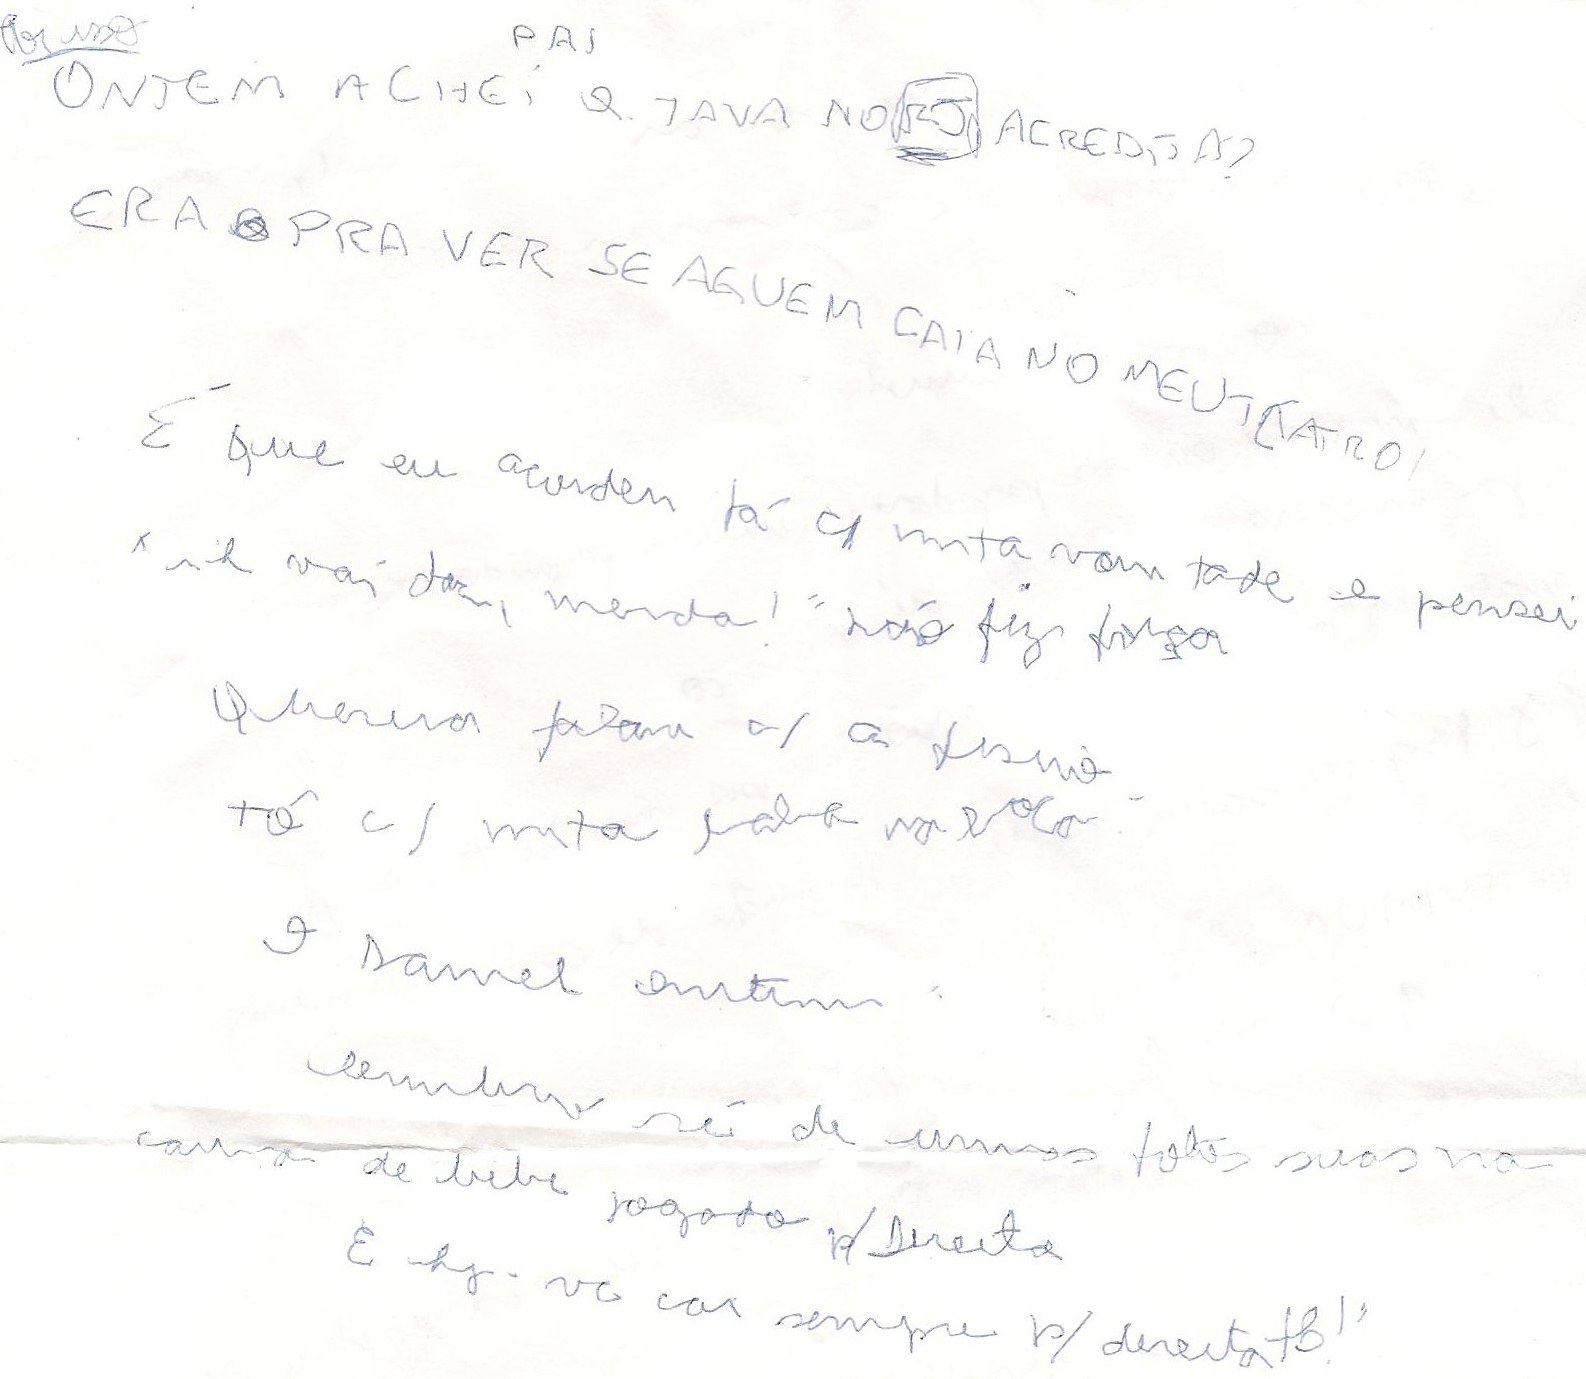 Por isso
PAI
ONTEM ACHEI Q. TAVA NO RJ, ACREDITA?
ERA PRA VER SE AGUEM CAIA NO MEU TEATRO!
É que eu acordei tá c/ mta vontade e pensei
"ih vai dar merda!" não fiz força
Queria falar c/ a
tô c/ mta saliva na boca.
Daniel ontem:
lembro né de umas fotos suas na
cama de bebê jogado p/ Direita
E hj. vc cai sempre p/ direita tb!"